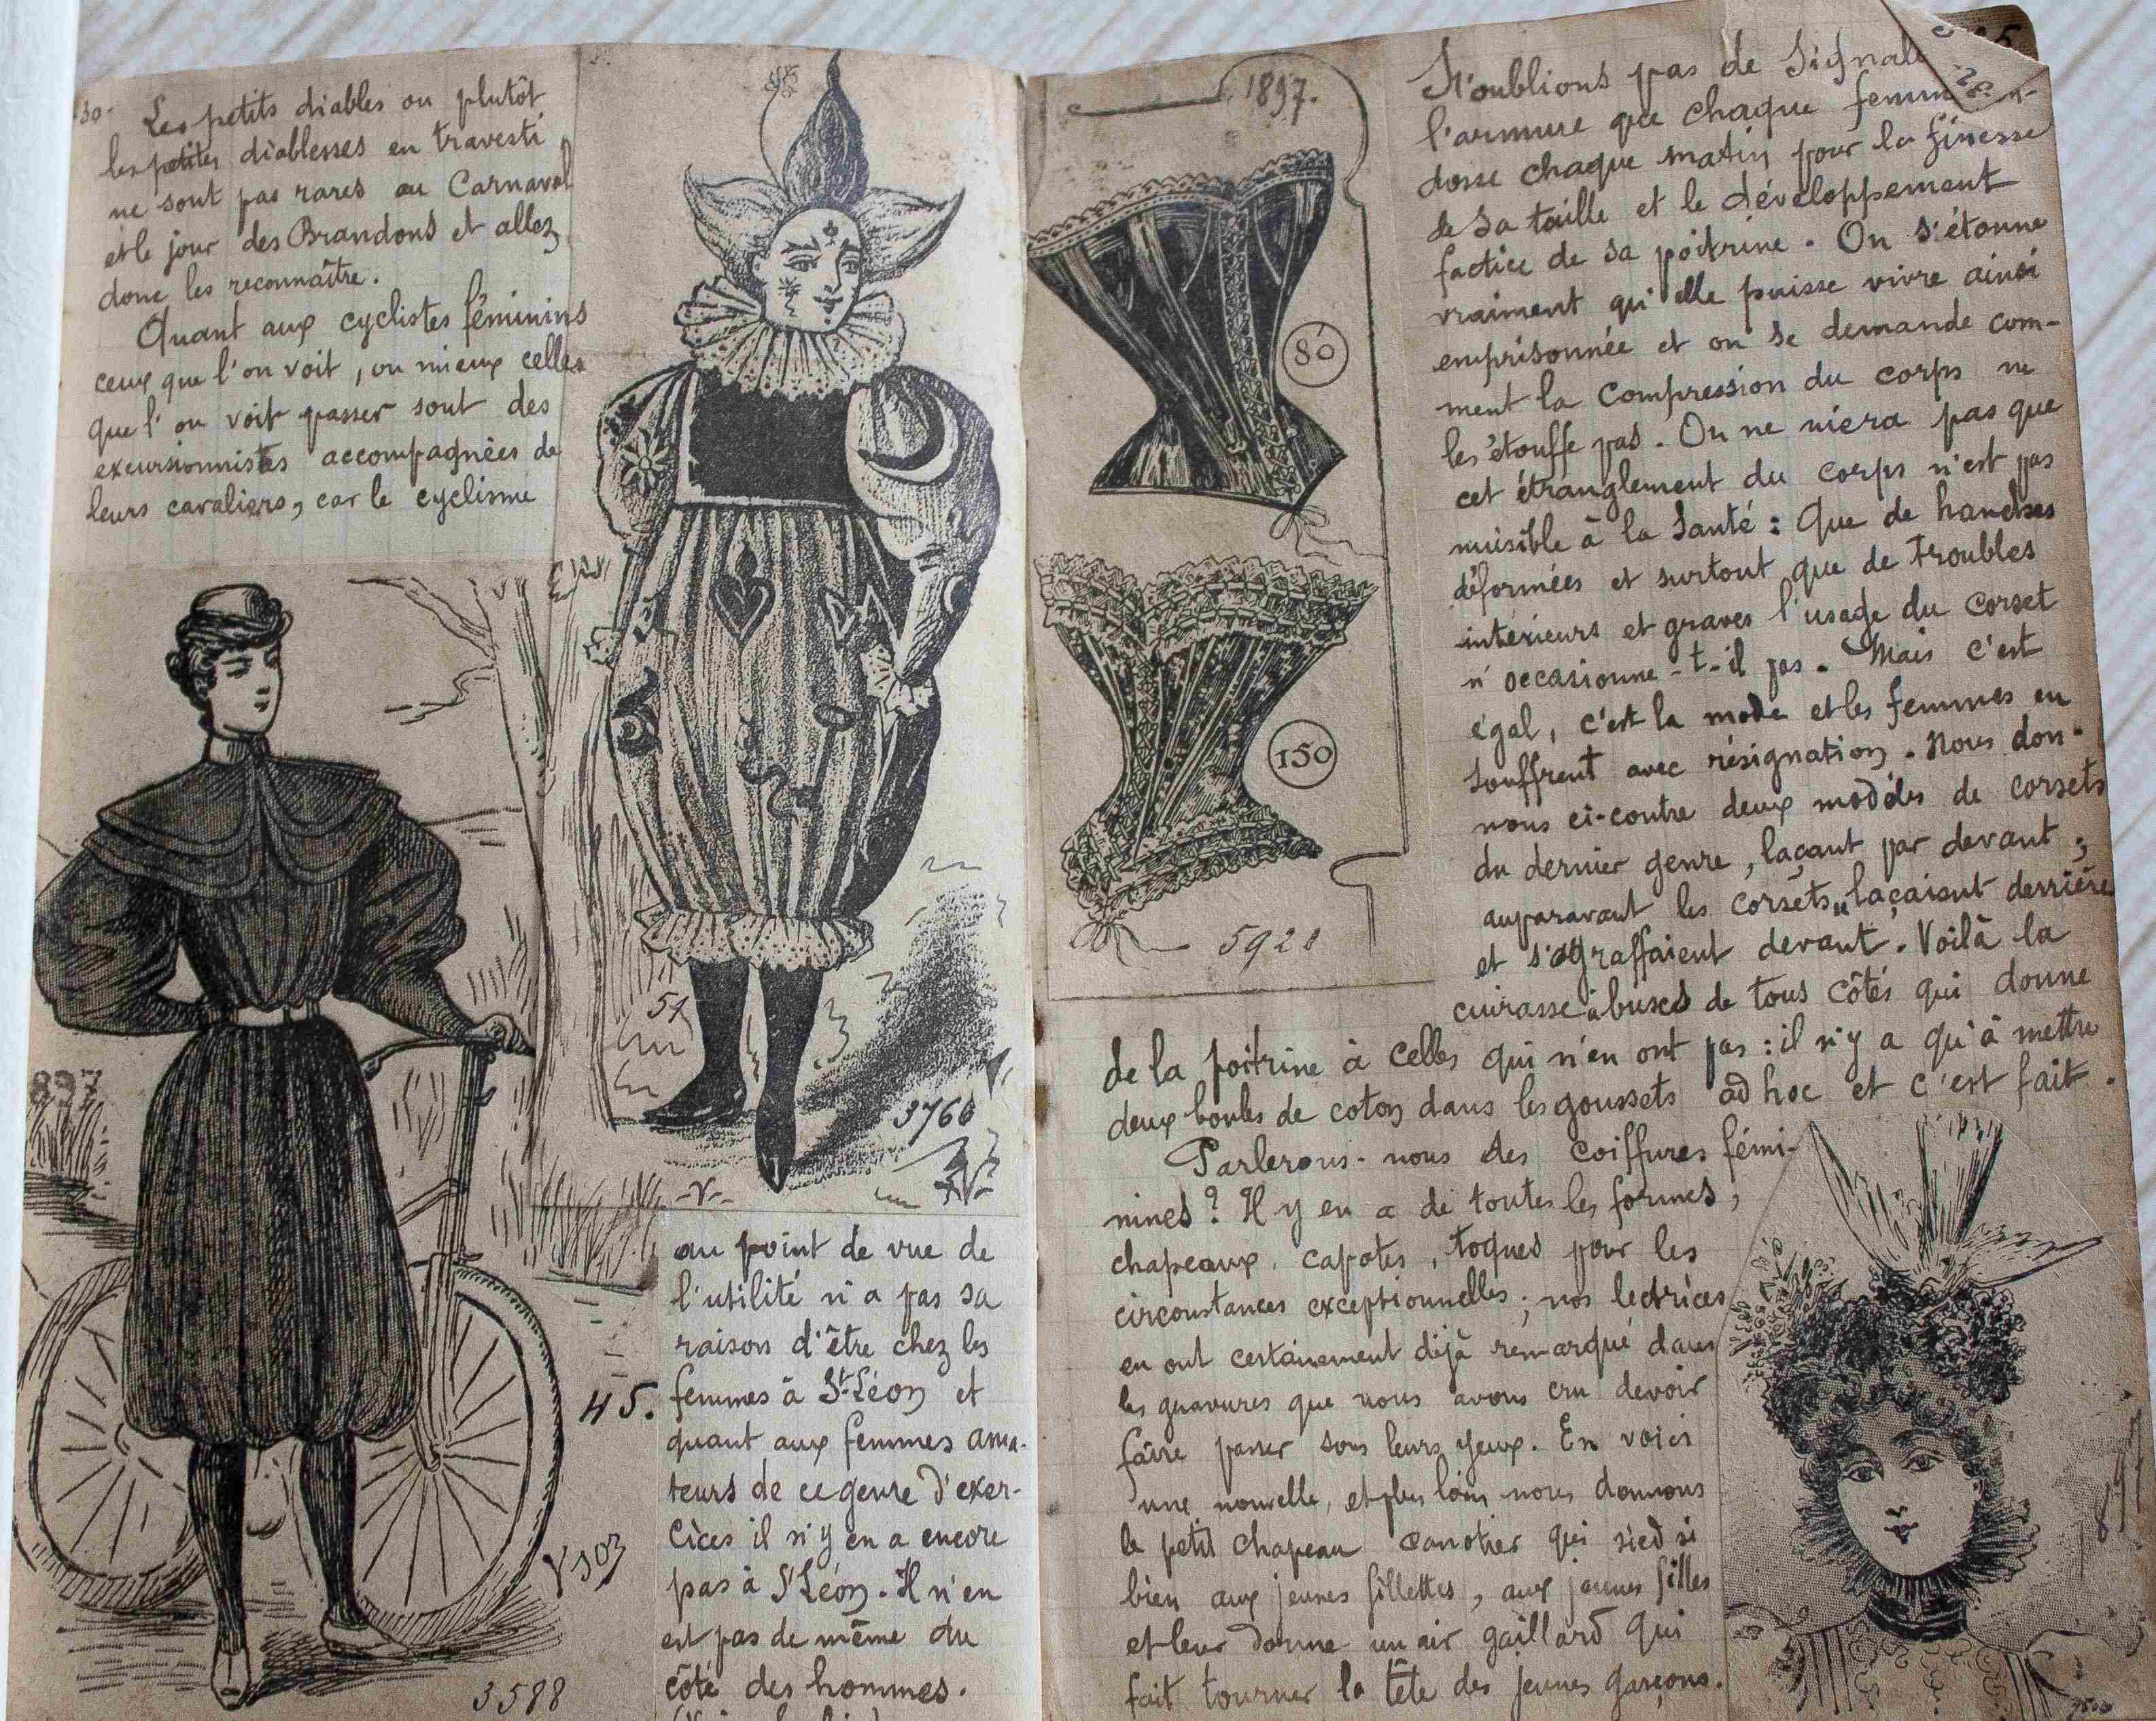 30-
Les petits diables ou plutôt
les petites diablesses en travesti
ne sont pas rares au Carnaval
et le jour des Brandons et allez
donc les reconnaître.
Quant aux cyclistes féminins
ceux que l'on voit, ou mieux celles
que l'on voit passer sont des
excursionnistes accompagnées de
leurs cavaliers, car le cyclisme
51
3760
-V-
897
45.
3588
au point de vue de
l'utilité n'a pas sa
raison d'être chez les
femmes à St-Léon et
quant aux femmes ama-
teurs de ce genre d'exer-
cices il n'y en a encore
pas à St Léon. Il n'en
est pas de même du
côté des hommes.
1897.
80
150
5921
N'oublions pas de
l'armure que chaque
dosse chaque matin pour la finesse
de sa taille et le développement
factice de sa poitrine. On s'étonne
vraiment qu'elle puisse vivre ainsi
emprisonnée et on se demande com-
ment la compression du corps ne
les étouffe pas. On ne niera pas que
cet étranglement du corps n'est pas
nuisible à la Santé : Que de hanches
déformées et surtout que de troubles
intérieurs et graves l'usage du corset
n'occasionne-t-il pas. Mais c'est
égal, c'est la mode et les femmes en
souffrent avec résignation. Nous don-
nons ci-contre deux modèles de corsets
du dernier genre, laçant par devant ;
auparavant les corsets se laçaient derrière
et s'agraffaient devant. Voilà la
cuirasse à buscs de tous côtés qui donne
de la poitrine à celles qui n'en ont pas : il n'y a qu'à mettre
deux boules de coton dans les goussets ad hoc et c'est fait.
Parlerons-nous des coiffures fémi-
nines ? Il y en a de toutes les formes,
chapeaux, capotes, toques pour les
circonstances exceptionnelles ; nos lectrices
en ont certainement déjà remarqué dans
les gravures que nous avons cru devoir
faire passer sous leurs yeux. En voici
une nouvelle, et plus loin nous donnons
le petit chapeau canotier qui sied si
bien aux jeunes fillettes, aux jeunes filles
et leur donne un air gaillard qui
fait tourner la tête des jeunes garçons.